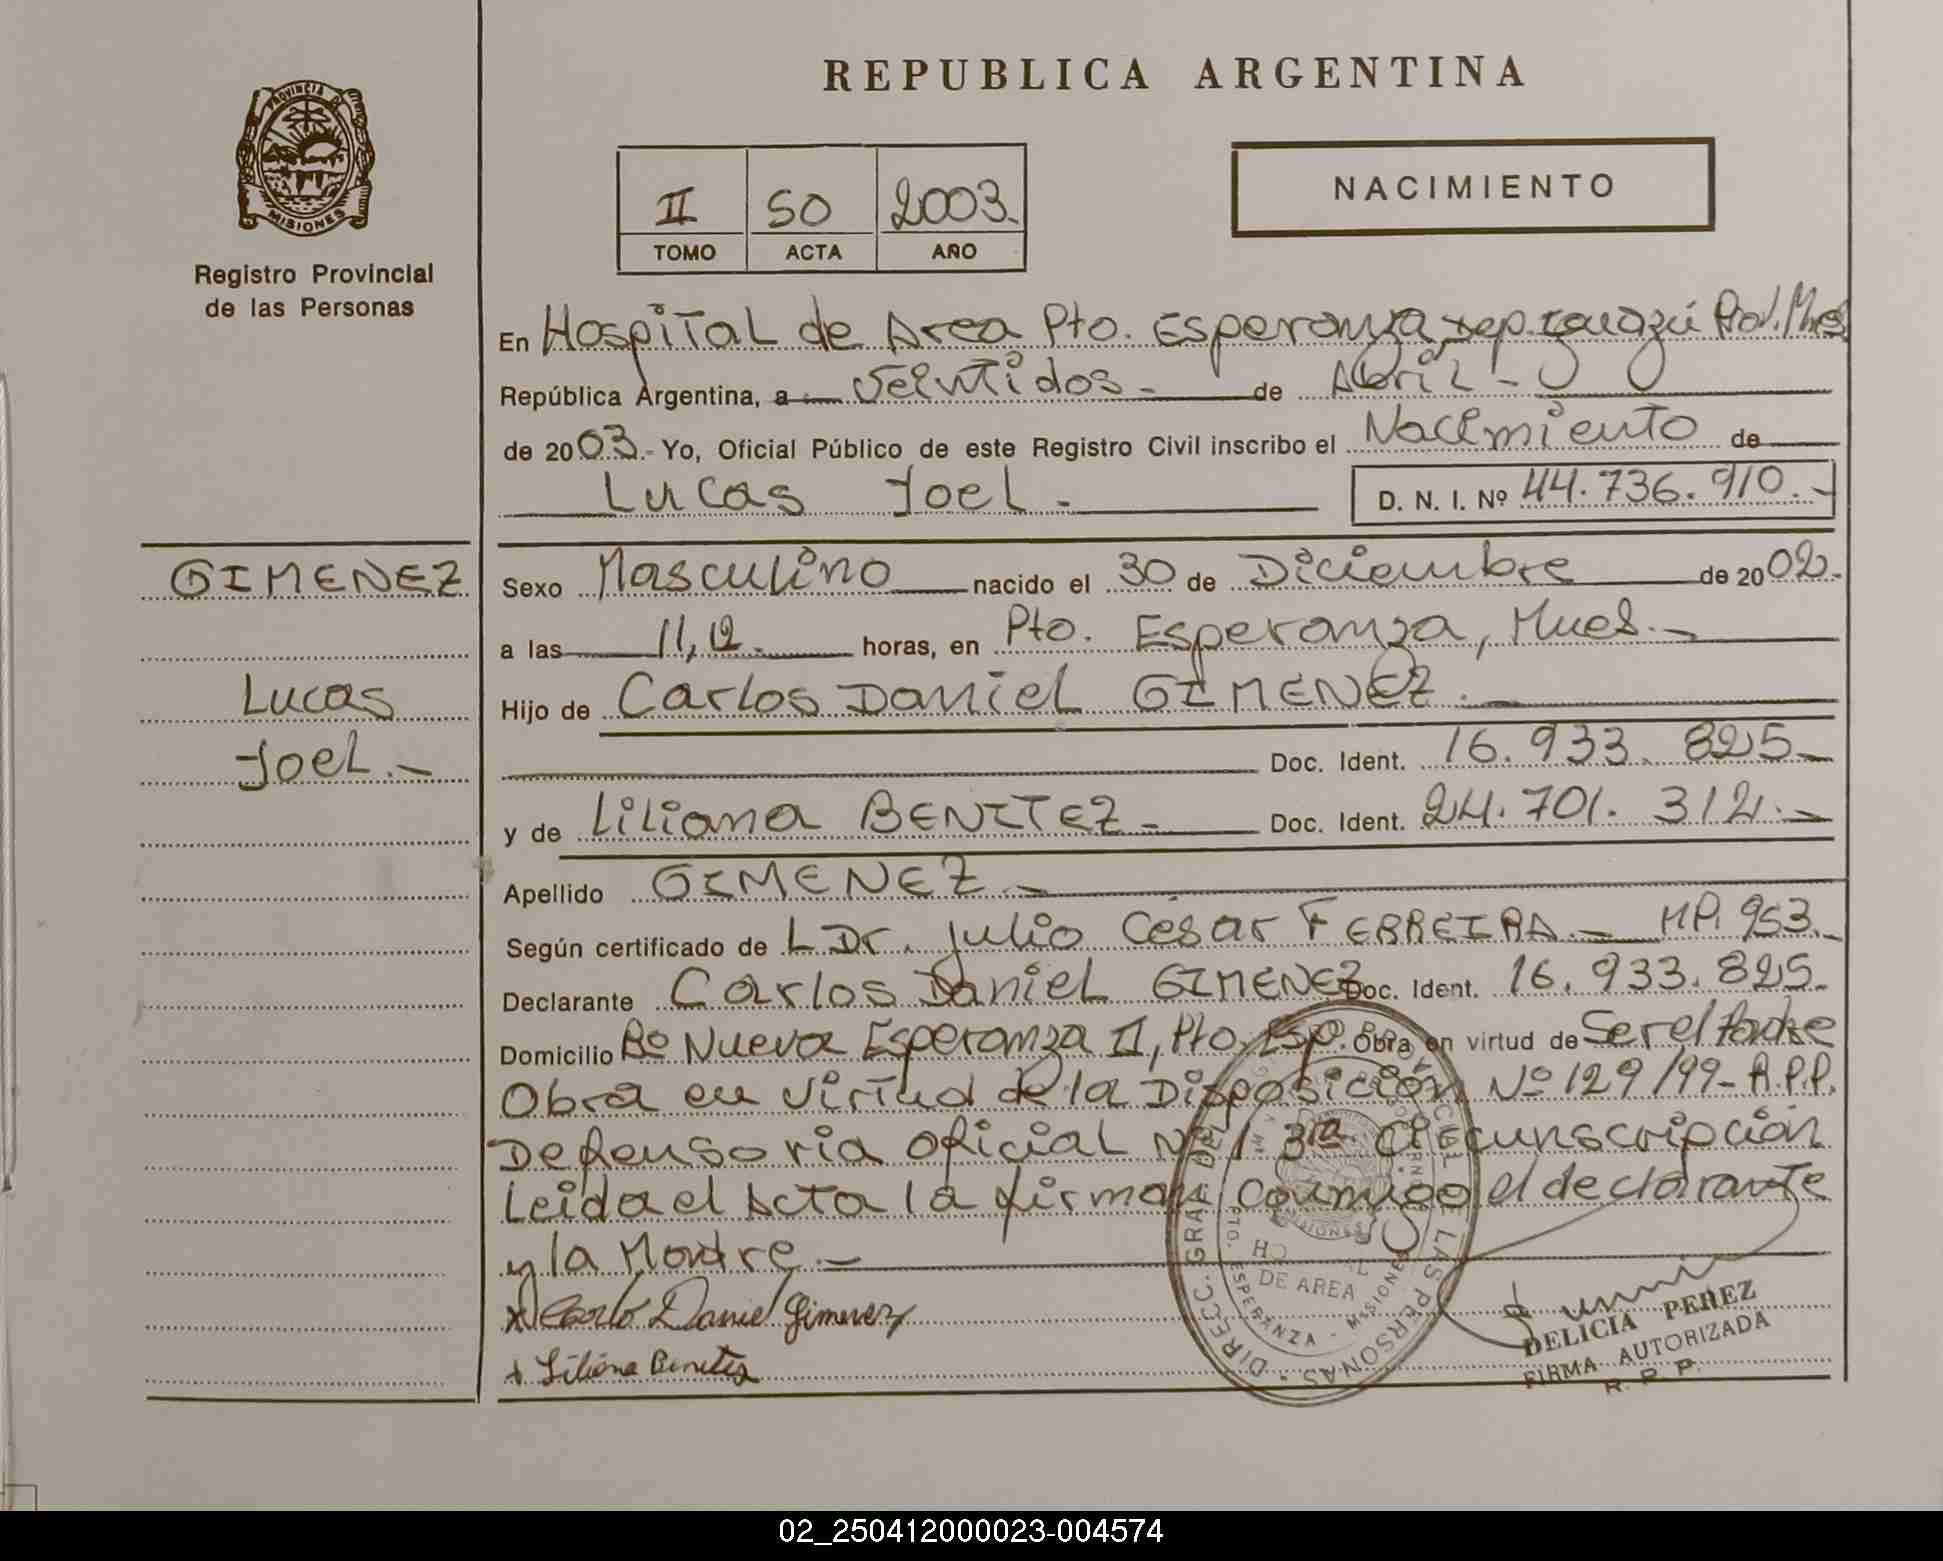 REPUBLICA ARGENTINA
PROVINCIA DE
MISIONES
Registro Provincial
de las Personas
II SO 2003.
TOMO ACTA AÑO
NACIMIENTO
En Hospital de Area Pto. Esperanza, Dep. Iguazú
República Argentina, a Veintidos.- de Abril -
de 2003.- Yo, Oficial Público de este Registro Civil inscribo el Nacimiento de
Lucas Joel.
D. N. I. Nº 44.736.910.-
GIMENEZ
Lucas
Joel.-
Sexo Masculino nacido el 30 de Diciembre de 2002.
a las 11,12. horas, en Pto. Esperanza, Mnes.-
Hijo de Carlos Daniel GIMENEZ.
Doc. Ident. 16.933.825-
y de Liliana BENITEZ- Doc. Ident. 24.701.312.-
Apellido GIMENEZ.-
Según certificado de L Dr. Julio César FERREIRA.- MP. 953.
Declarante Carlos Daniel GIMENEZ Doc. Ident. 16.933.825.
Domicilio Bº Nueva Esperanza II, Pto. Esp. Obra en virtud de Ser el Padre
Obra en virtud de la Disposición Nº 129/99- R.P.P.
Defensoria oficial Nº 1 3ra Circunscripción
Leida el Acta la firman conmigo el declarante
y la Madre.-
x Carlo Daniel Gimenez
+ Liliana Benitez
DIRECC. GRAL. DEL LAS PERSONAS
DE AREA
PTO. ESPERANZA - MISIONES
DELICIA PEREZ
FIRMA AUTORIZADA
R. P. P.
02_250412000023-004574